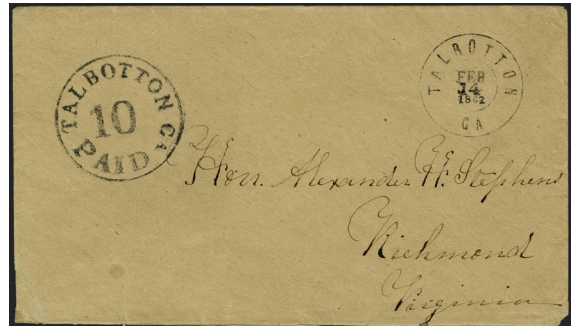 TALBOTTON GA
10
PAID
TALBOTTON
FEB
14
1862
GA
Hon. Alexander H. Stephens
Richmond
Virginia